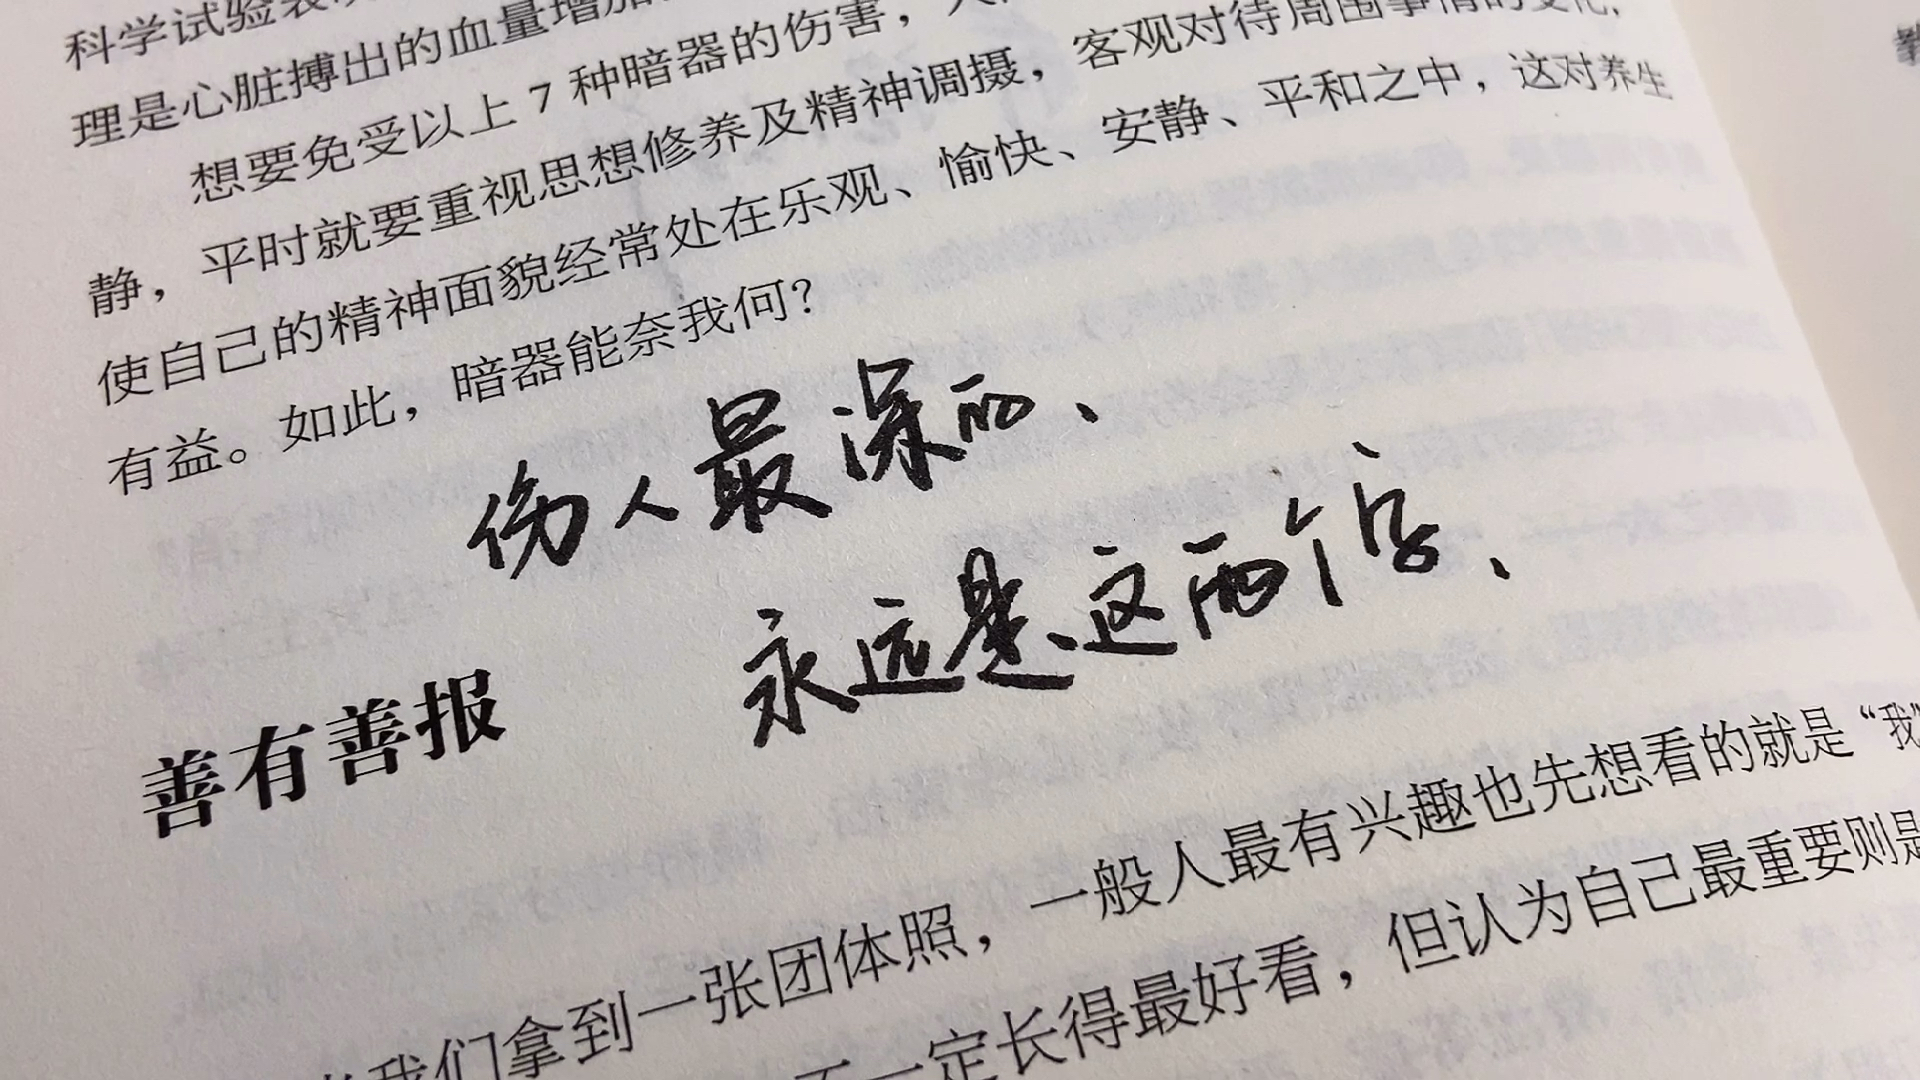 科学试验表
理是心脏搏出的血量增加
想要免受以上7种暗器的伤害，
静，平时就要重视思想修养及精神调摄，客观对待周围事情的变化，
使自己的精神面貌经常处在乐观、愉快、安静、平和之中，这对养生
有益。如此，暗器能奈我何？
伤人最深的、
永远是这两个字、
善有善报
我们拿到一张团体照，一般人最有兴趣也先想看的就是“我”
不一定长得最好看，但认为自己最重要则是